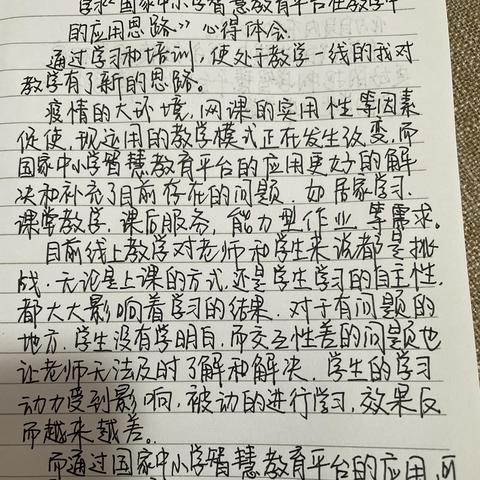 学习《国家中小学智慧教育平台在教学中
的应用思路》心得体会
通过学习和培训,使处于教学一线的我对
教学有了新的思路。
疫情的大环境,网课的实用性等因素
促使,现运用的教学模式正在发生改变,而
国家中小学智慧教育平台的应用更好的解
决和补充了目前存在的问题.如居家学习.
课堂教学.课后服务,能力型作业等需求。
目前线上教学对老师和学生来说都是挑
战.无论是上课的方式.还是学生学习的自主性.
都大大影响着学习的结果.对于有问题的
地方.学生没有学明白.而交互性差的问题也
让老师无法及时了解和解决.学生的学习
动力受到影响.被动的进行学习.效果反
而越来越差。
而通过国家中小学智慧教育平台的应用.可